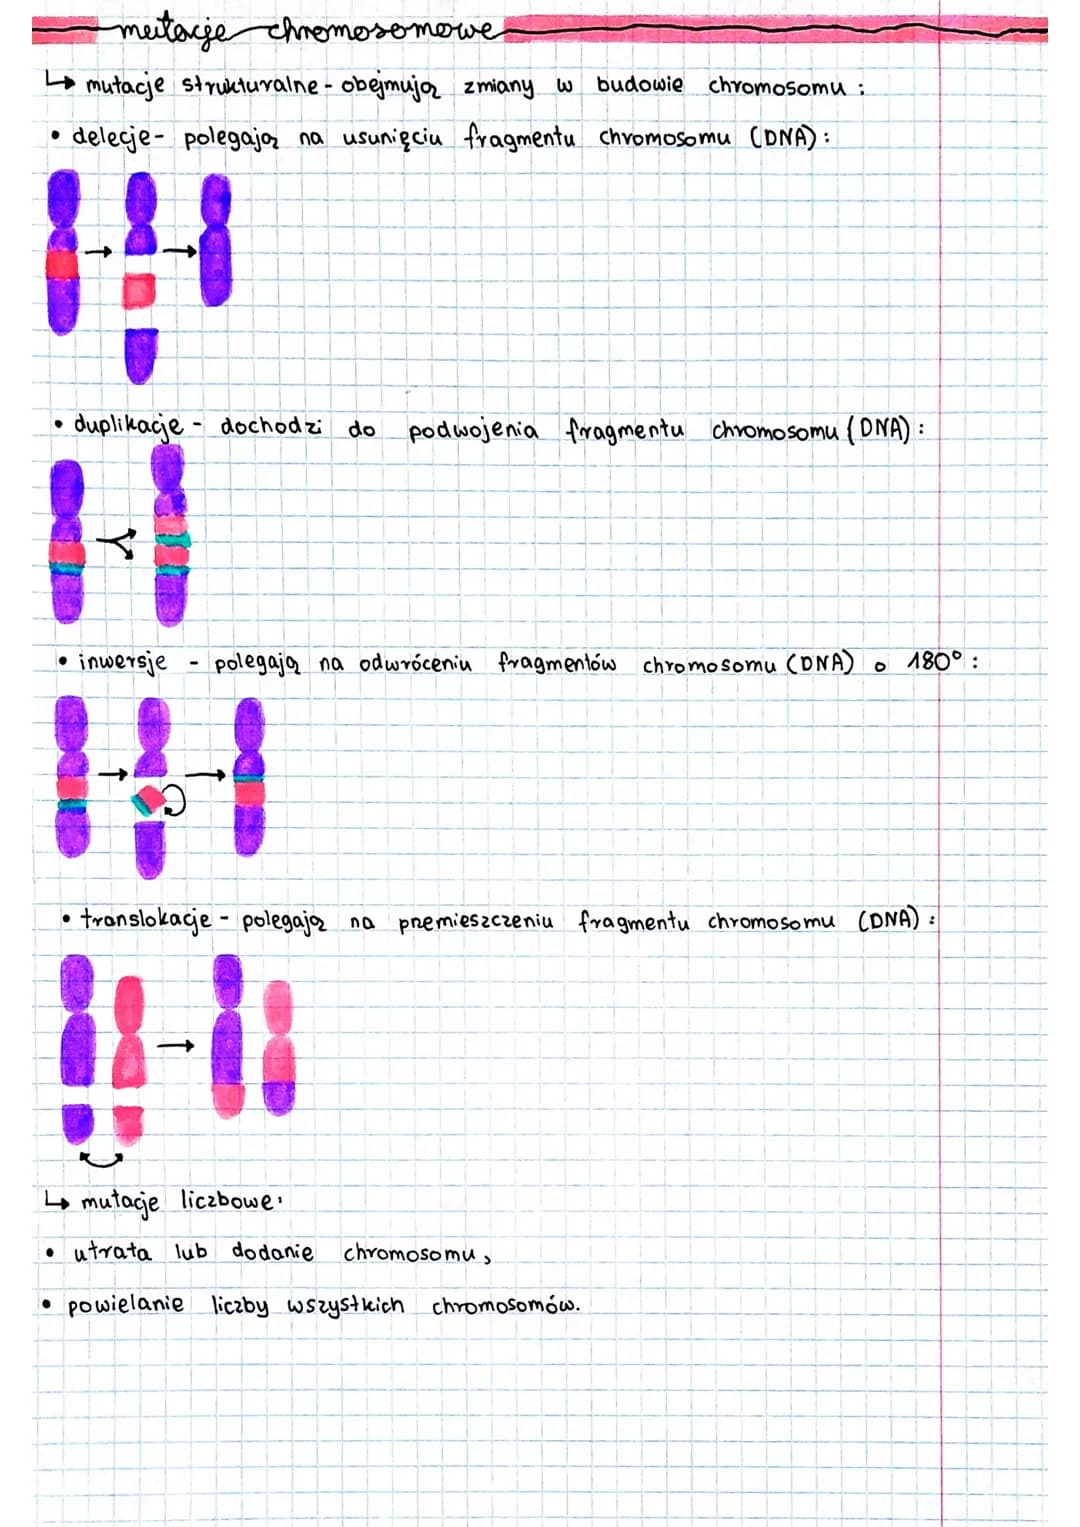 mutacje chromosomowe
↳ mutacje strukturalne - obejmują zmiany w budowie chromosomu :
• delecje - polegają na usunięciu fragmentu chromosomu (DNA) :
• duplikacje - dochodzi do podwojenia fragmentu chromosomu (DNA) :
• inwersje - polegają na odwróceniu fragmentów chromosomu (DNA) o 180° :
• translokacje - polegają na przemieszczeniu fragmentu chromosomu (DNA) :
↳ mutacje liczbowe:
• utrata lub dodanie chromosomu,
• powielanie liczby wszystkich chromosomów.